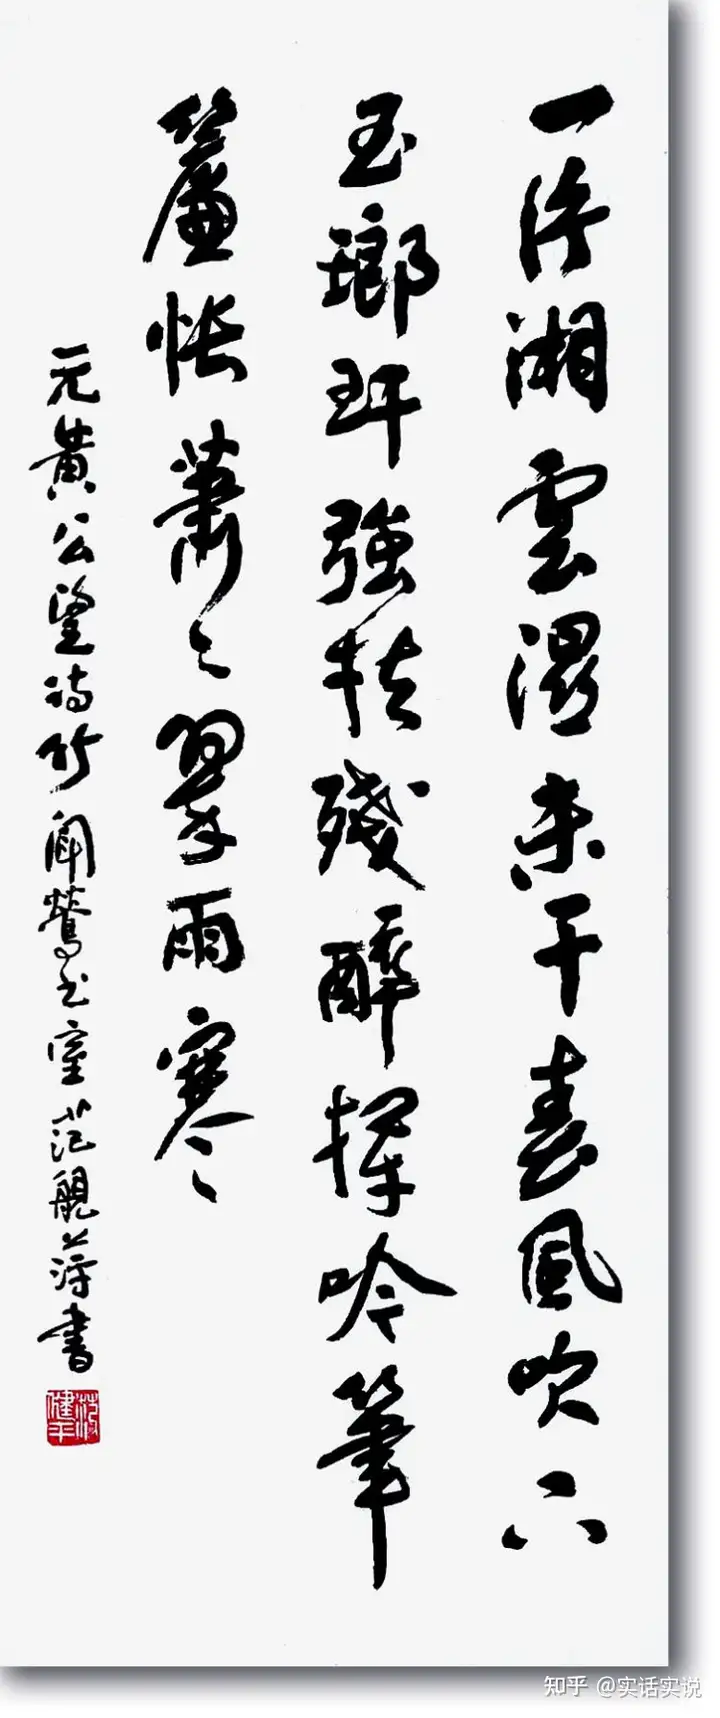 一湘雲濕未干春風吹下
玉瑯玕強扶殘醉揮吟筆
簾帳蕭〻翠雨寒
元黃公望詩竹聞鶯書室范書
知乎 @实话实说